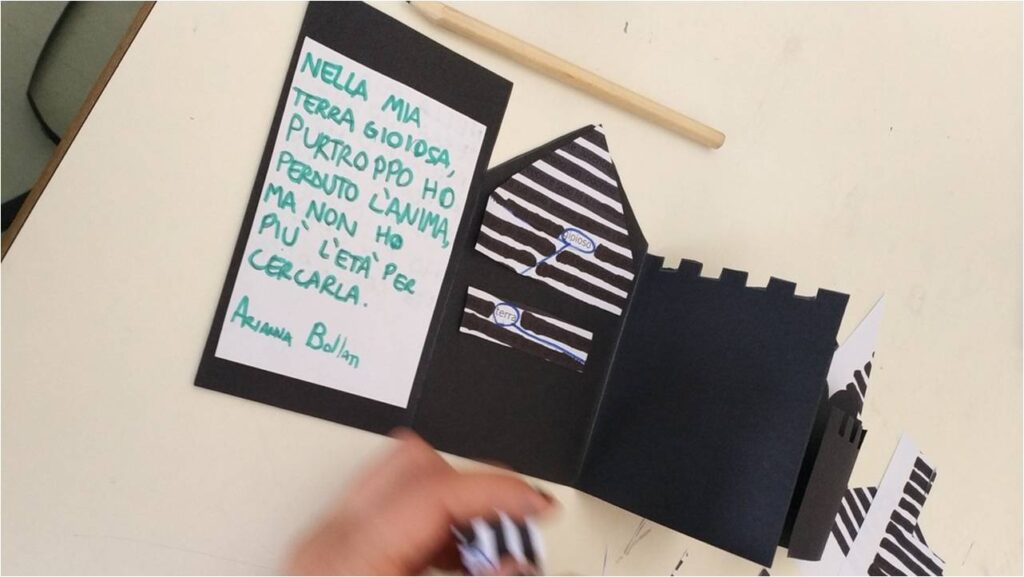 NELLA MIA
TERRA GIOIOSA,
PURTROPPO HO
PERDUTO L'ANIMA,
MA NON HO
PIÙ L'ETÀ PER
CERCARLA.
ARIANNA BOLLATI
gioioso
terra